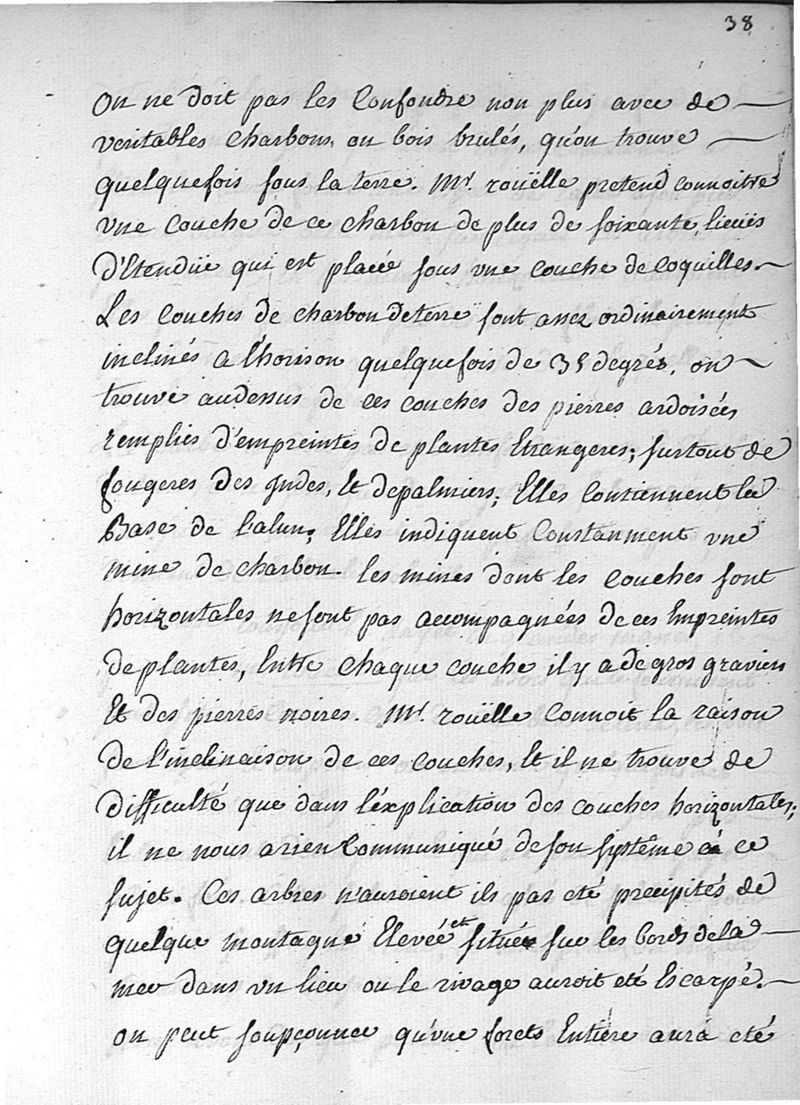 38
On ne doit pas les Confondre non plus avec de
veritables charbons, ou bois brulés, qu'on trouve
quelquefois sous la terre. Mr. rouëlle pretend connoitre
une couche de ce charbon de plus de soixante lieuës
d'Etenduë qui est placée sous une couche de Coquilles.
Les couches de charbon de terre sont assez ordinairement
inclinés a l'horison quelquefois de 35 degrés, on
trouve audessus de ces couches des pierres ardoisées
remplies d'empreintes de plantes Etrangeres; surtout de
fougeres des Indes, Et de palmiers; Elles Contiennent la
Base de l'alun; Elles indiquent Constanment une
mine de charbon. les mines dont les couches sont
horizontales ne sont pas accompagnées de ces Empreintes
de plantes, Entre chaque couche il y a de gros graviers
Et des pierres noires. Mr. rouëlle Connoit la raison
de l'inclinaison de ces couches, Et il ne trouve de
difficulté que dans l'éxplication des couches horizontales;
il ne nous a rien Communiqué de son systême à ce
sujet. Ces arbres n'auroient ils pas eté précipités de
quelque montagne Elevée et située sur les bords de la
mer dans un lieu ou le rivage auroit eté Escarpé.
on peut soupçonner qu'une forets Entiere aura eté